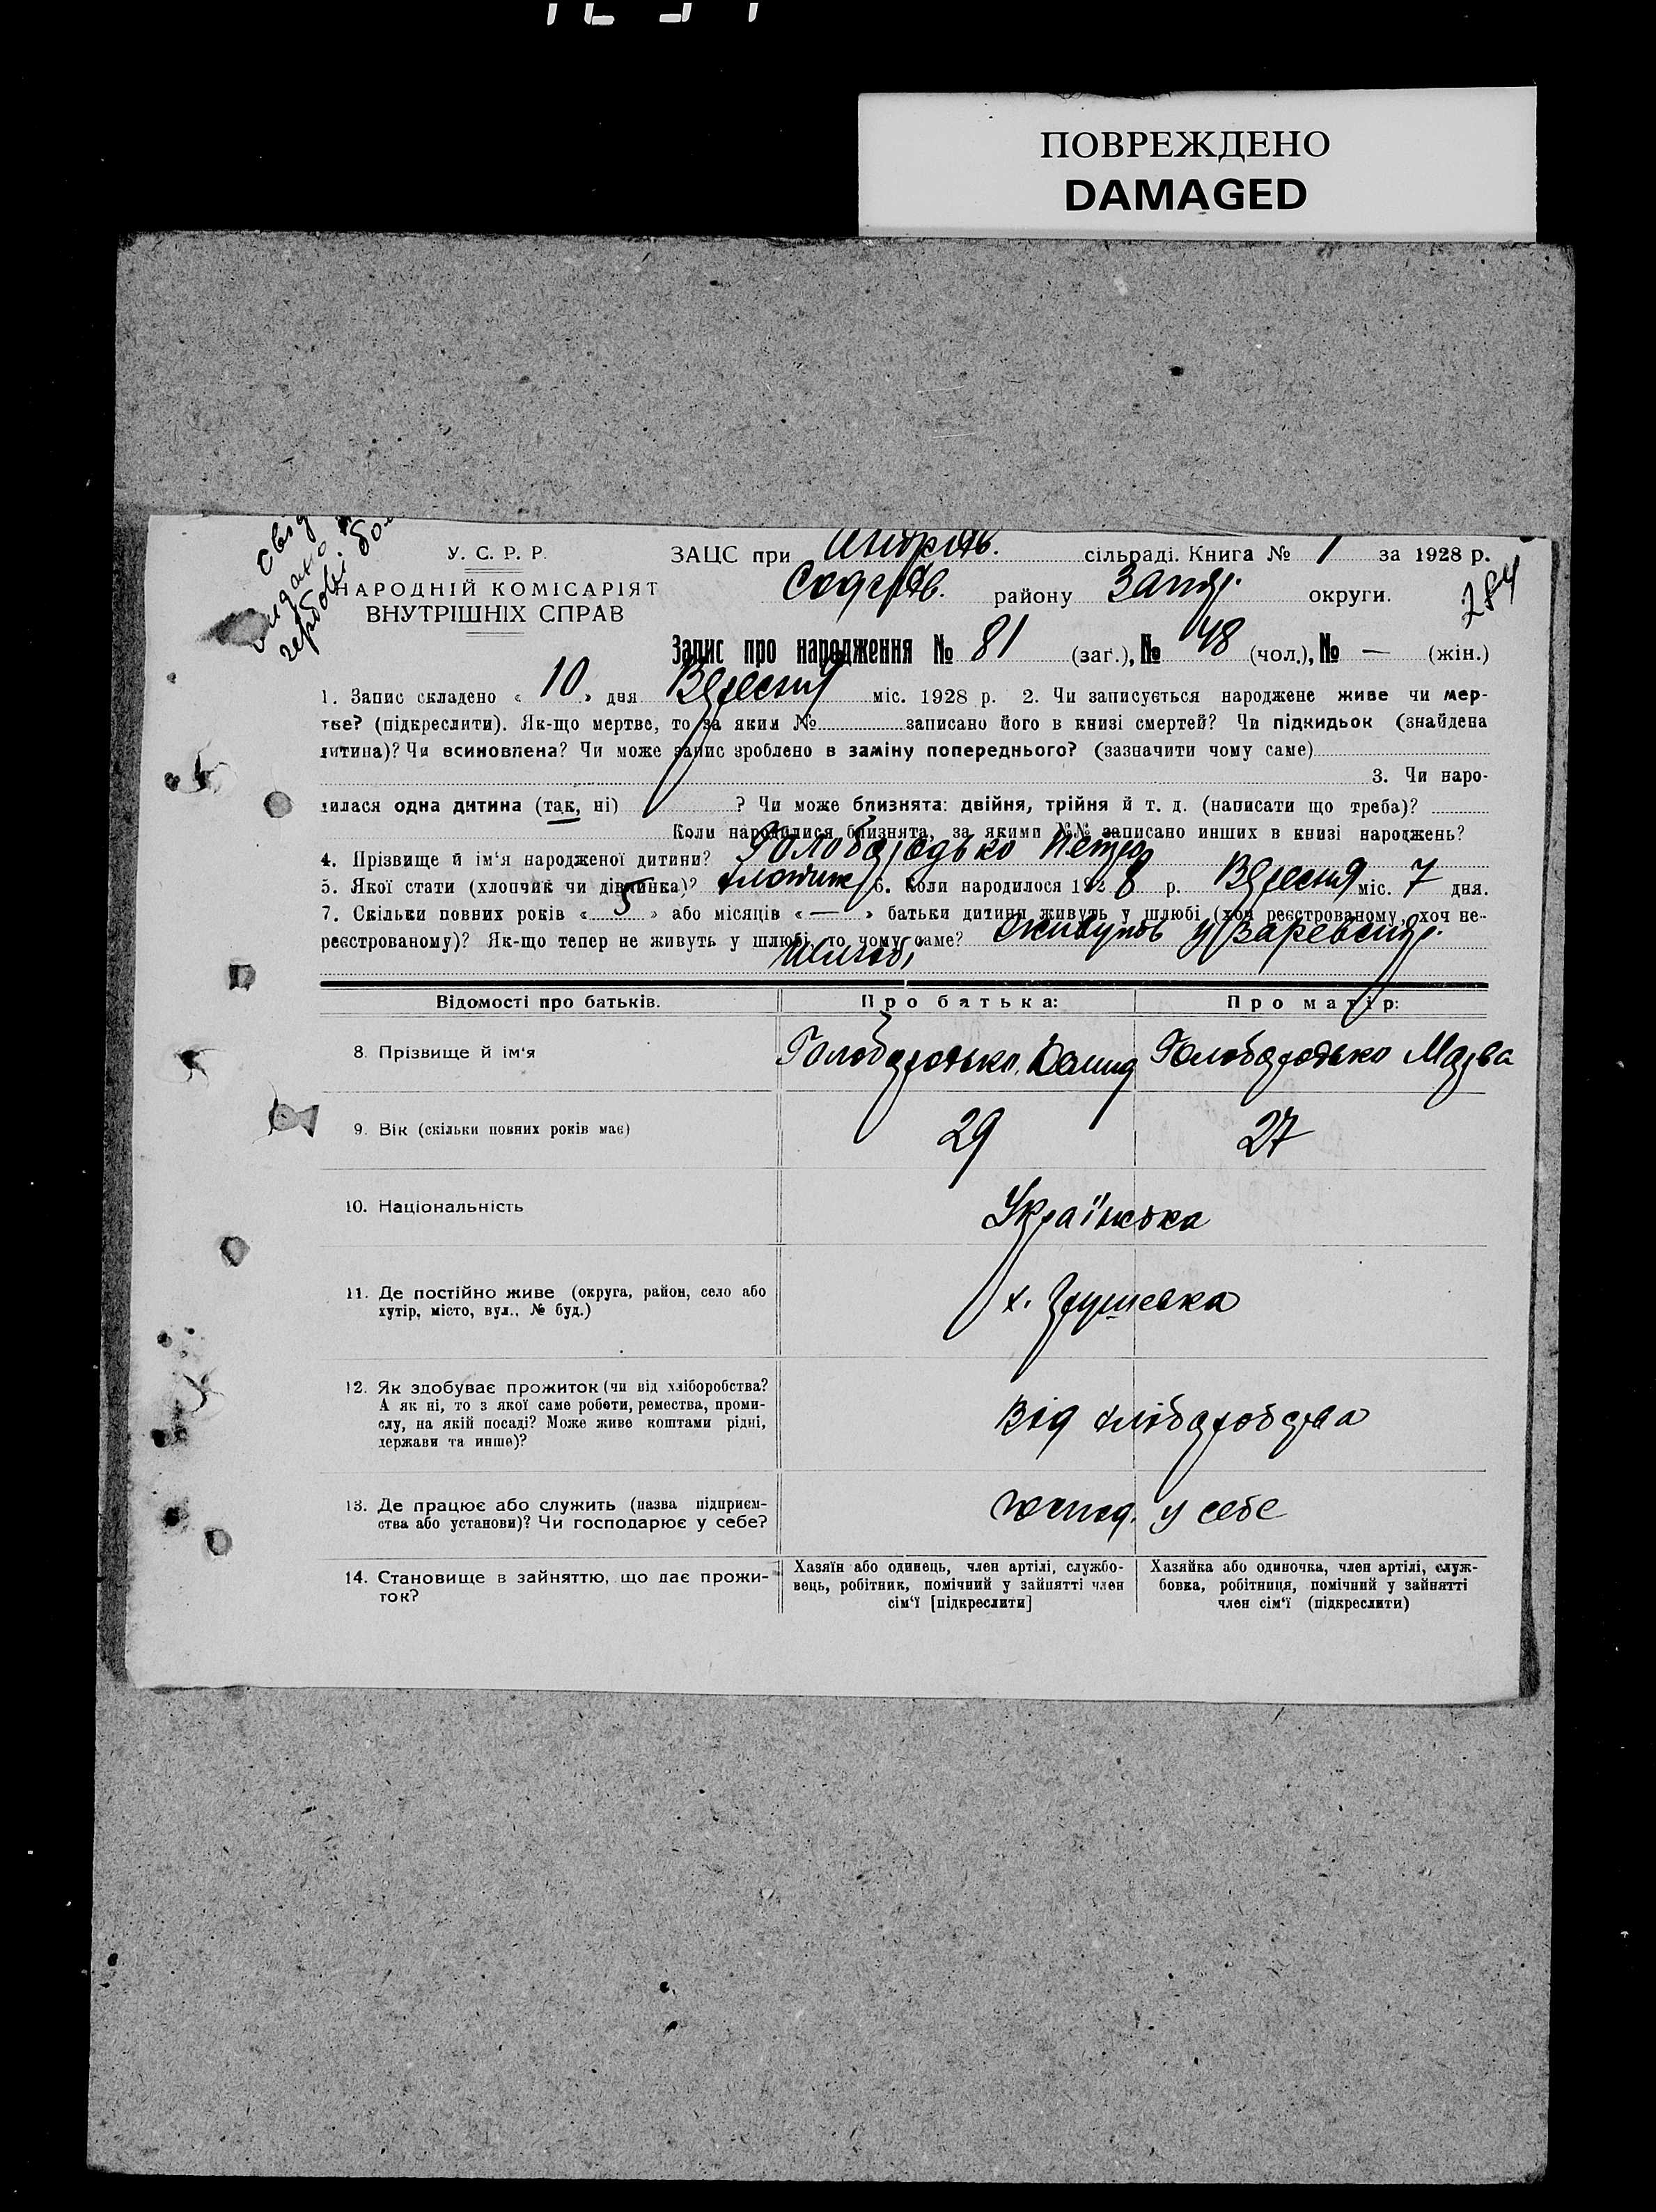 ПОВРЕЖДЕНО
DAMAGED
У. С. Р. Р.
НАРОДНІЙ КОМІСАРІЯТ
ВНУТРІШНІХ СПРАВ
ЗАЦС при сільраді. Книга № 1 за 1928 р.
району округи.
284
Запис про народження № 81 (заг.), № 48 (чол.), № — (жін.)
1. Запис складено « 10 » дня Вересня міс. 1928 р. 2. Чи записується народжене живе чи мер-
тве? (підкреслити). Як-що мертве, то за яким № записано його в книзі смертей? Чи підкидьок (знайдена
дитина)? Чи всиновлена? Чи може запис зроблено в заміну попереднього? (зазначити чому саме)
3. Чи наро-
дилася одна дитина (так, ні) ? Чи може близнята: двійня, трійня й т. д. (написати що треба)?
Коли народилися близнята, за якими №№ записано инших в книзі народжень?
4. Прізвище й ім‘я народженої дитини? Голобородько Петро
5. Якої стати (хлопчик чи дівчинка)? хлопчик 6. Коли народилося 1928 р. Вересня міс. 7 дня.
7. Скільки повних років « 5 » або місяців « — » батьки дитини живуть у шлюбі (хоч реєстрованому, хоч не-
реєстрованому)? Як-що тепер не живуть у шлюбі, то чому саме? живуть у зареестр.
шлюбі
Відомості про батьків. Про батька: Про матір:
8. Прізвище й ім‘я Голобородько Голобородько
9. Вік (скільки повних років має) 29 27
10. Національність Українська
11. Де постійно живе (округа, район, село або
хутір, місто, вул., № буд.) х.
12. Як здобуває прожиток (чи від хліборобства?
А як ні, то з якої саме роботи, ремества, проми-
слу, на якій посаді? Може живе коштами рідні,
держави та инше)? Від хліборобства
13. Де працює або служить (назва підприєм-
ства або установи)? Чи господарює у себе? господ. у себе
14. Становище в зайняттю, що дає прожи-
ток?
Хазяїн або одинець, член артілі, службо-
вець, робітник, помічний у зайнятті член
сім‘ї [підкреслити]
Хазяйка або одиночка, член артілі, служ-
бовка, робітниця, помічний у зайнятті
член сім‘ї (підкреслити)